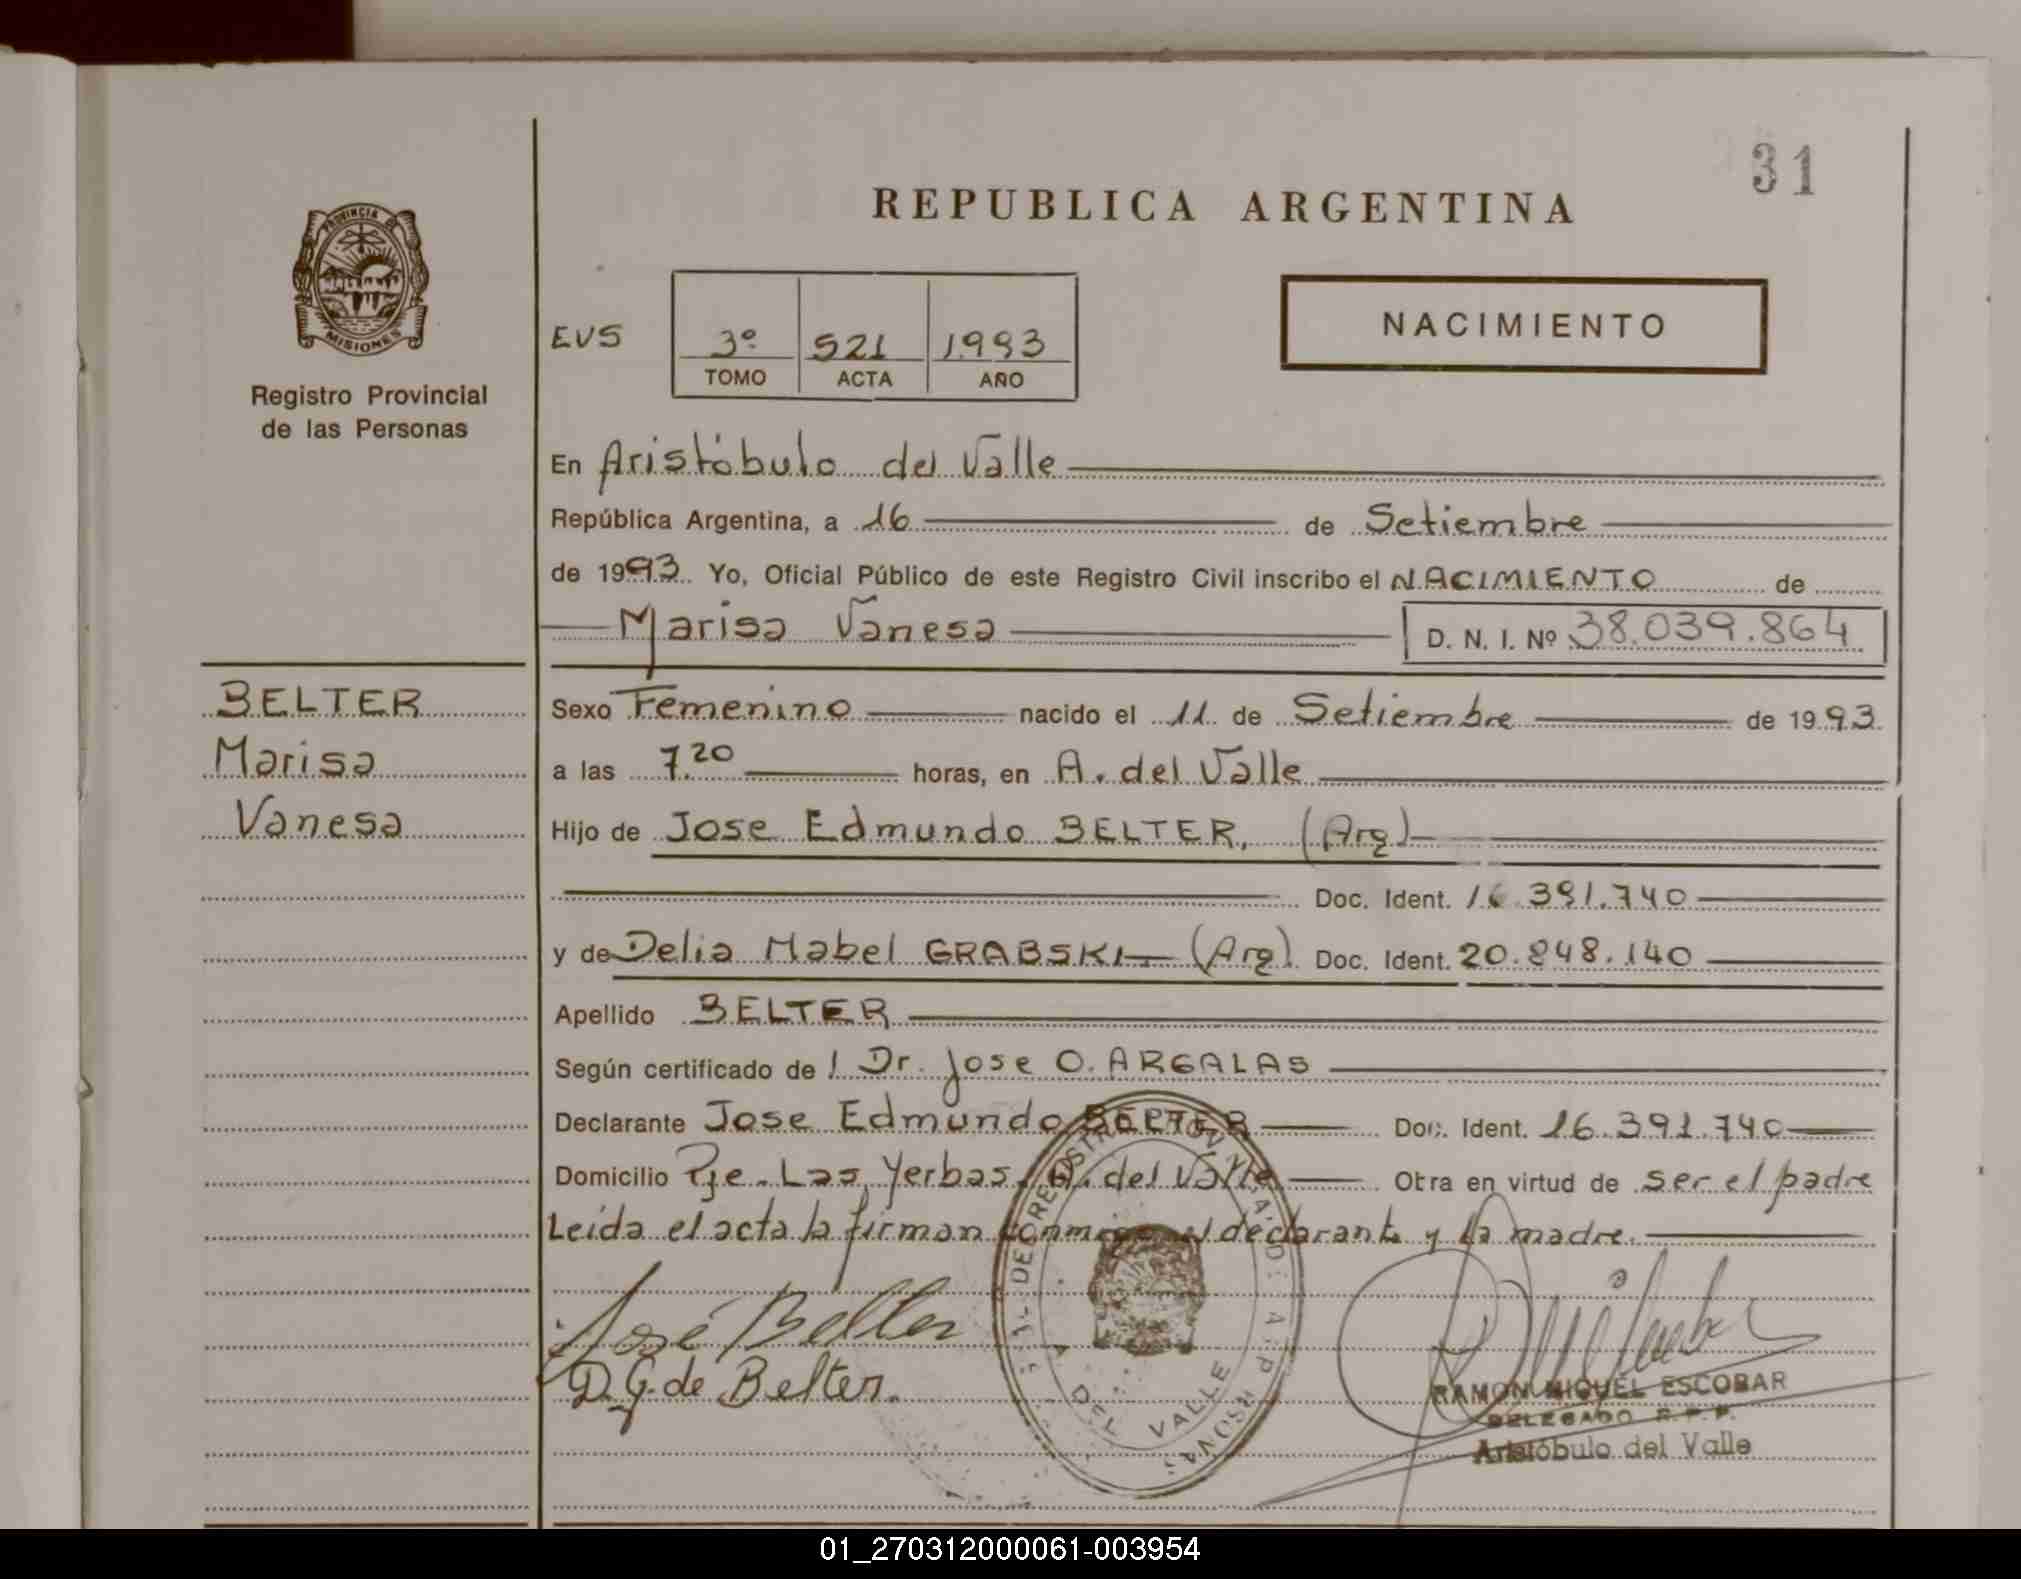 31
REPUBLICA ARGENTINA
PROVINCIA DE
MISIONES
Registro Provincial
de las Personas
EVS
3º 521 1993
TOMO ACTA AÑO
NACIMIENTO
En Aristóbulo del Valle
República Argentina, a 16 de Setiembre
de 1993. Yo, Oficial Público de este Registro Civil inscribo el NACIMIENTO de
Marisa Vanesa D. N. I. Nº 38.039.864
BELTER
Marisa
Vanesa
Sexo Femenino nacido el 11 de Setiembre de 1993
a las 7.20 horas, en A. del Valle
Hijo de Jose Edmundo BELTER, (Arg)
Doc. Ident. 16.391.740
y de Delia Mabel GRABSKI (Arg) Doc. Ident. 20.848.140
Apellido BELTER
Según certificado de l Dr. Jose O. ARGALAS
Declarante Jose Edmundo BELTER Doc. Ident. 16.391.740
Domicilio Pje. Las Yerbas. A. del Valle Otra en virtud de ser el padre
Leída el acta la firman conmigo el declarante y la madre.
José Belter
D. G. de Belter.
DEL VALLE
RAMON MIGUEL ESCOBAR
DELEGADO R.P.P.
Aristóbulo del Valle
01_270312000061-003954